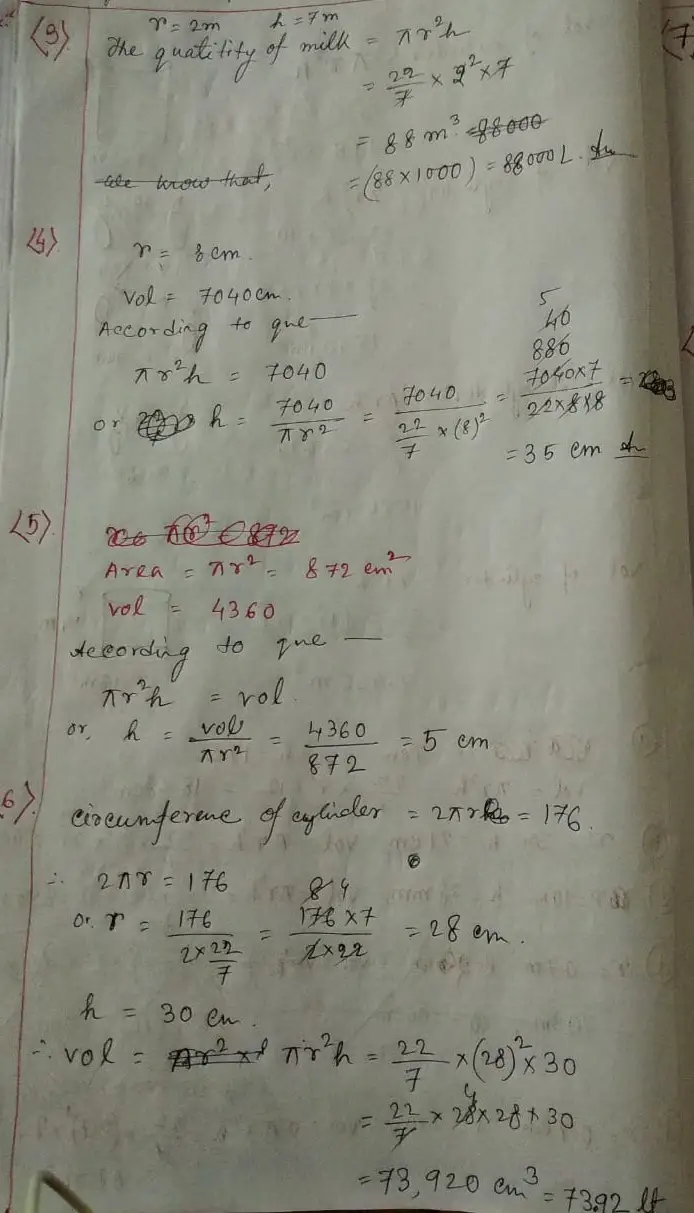 (3) r = 2m h = 7m
The quatitity of milk = πr²h
= 22/7 × 2² × 7
= 88 m³ = 88000
We know that, = (88×1000) = 88000 L. Ans
(4)
r = 8 cm.
Vol = 7040 cm.
According to que —
πr²h = 7040
or h = 7040/πr² = 7040/(22/7 × (8)²) = 7040×7/22×8×8 =
5
40
880
= 35 cm Ans
(5)
πr² = 872
Area = πr² = 872 cm²
Vol = 4360
According to que —
πr²h = vol.
or, h = vol/πr² = 4360/872 = 5 cm
6) circumference of cylinder = 2πr = 176.
∴ 2πr = 176
8 4
or. r = 176/(2×22/7) = 176×7/2×22 = 28 cm.
h = 30 cm.
∴ Vol = πr² × πr²h = 22/7 × (28)² × 30
4
= 22/7 × 28 × 28 × 30
= 73,920 cm³ = 73.92 lt
(7